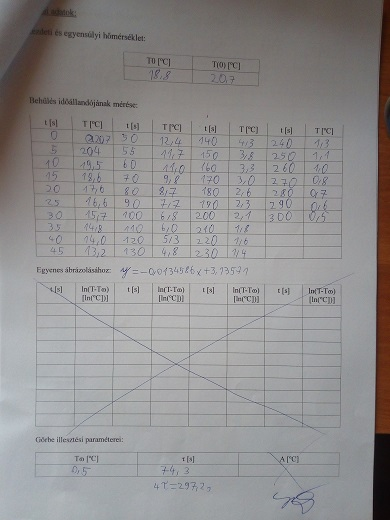 adatok:
kezdeti és egyensúlyi hőmérséklet:
T0 [°C] T(0) [°C]
18,8 20,7
Behűlés időállandójának mérése:
t [s] T [°C] t [s] T [°C] t [s] T [°C] t [s] T [°C]
0 20,7 50 12,4 140 4,3 240 1,3
5 20,4 55 11,7 150 3,8 250 1,1
10 19,5 60 11,0 160 3,3 260 1,0
15 18,6 70 9,8 170 3,0 270 0,8
20 17,6 80 8,7 180 2,6 280 0,7
25 16,6 90 7,7 190 2,3 290 0,6
30 15,7 100 6,8 200 2,1 300 0,5
35 14,8 110 6,0 210 1,8
40 14,0 120 5,3 220 1,6
45 13,2 130 4,8 230 1,4
Egyenes ábrázolásához: y = -0,0134586x + 3,13571
t [s] ln(T-T∞) [ln(°C)] t [s] ln(T-T∞) [ln(°C)] t [s] ln(T-T∞) [ln(°C)] t [s] ln(T-T∞) [ln(°C)]
Görbe illesztési paraméterei:
T∞ [°C] τ [s] A [°C]
0,5 74,3
4τ=297,2s